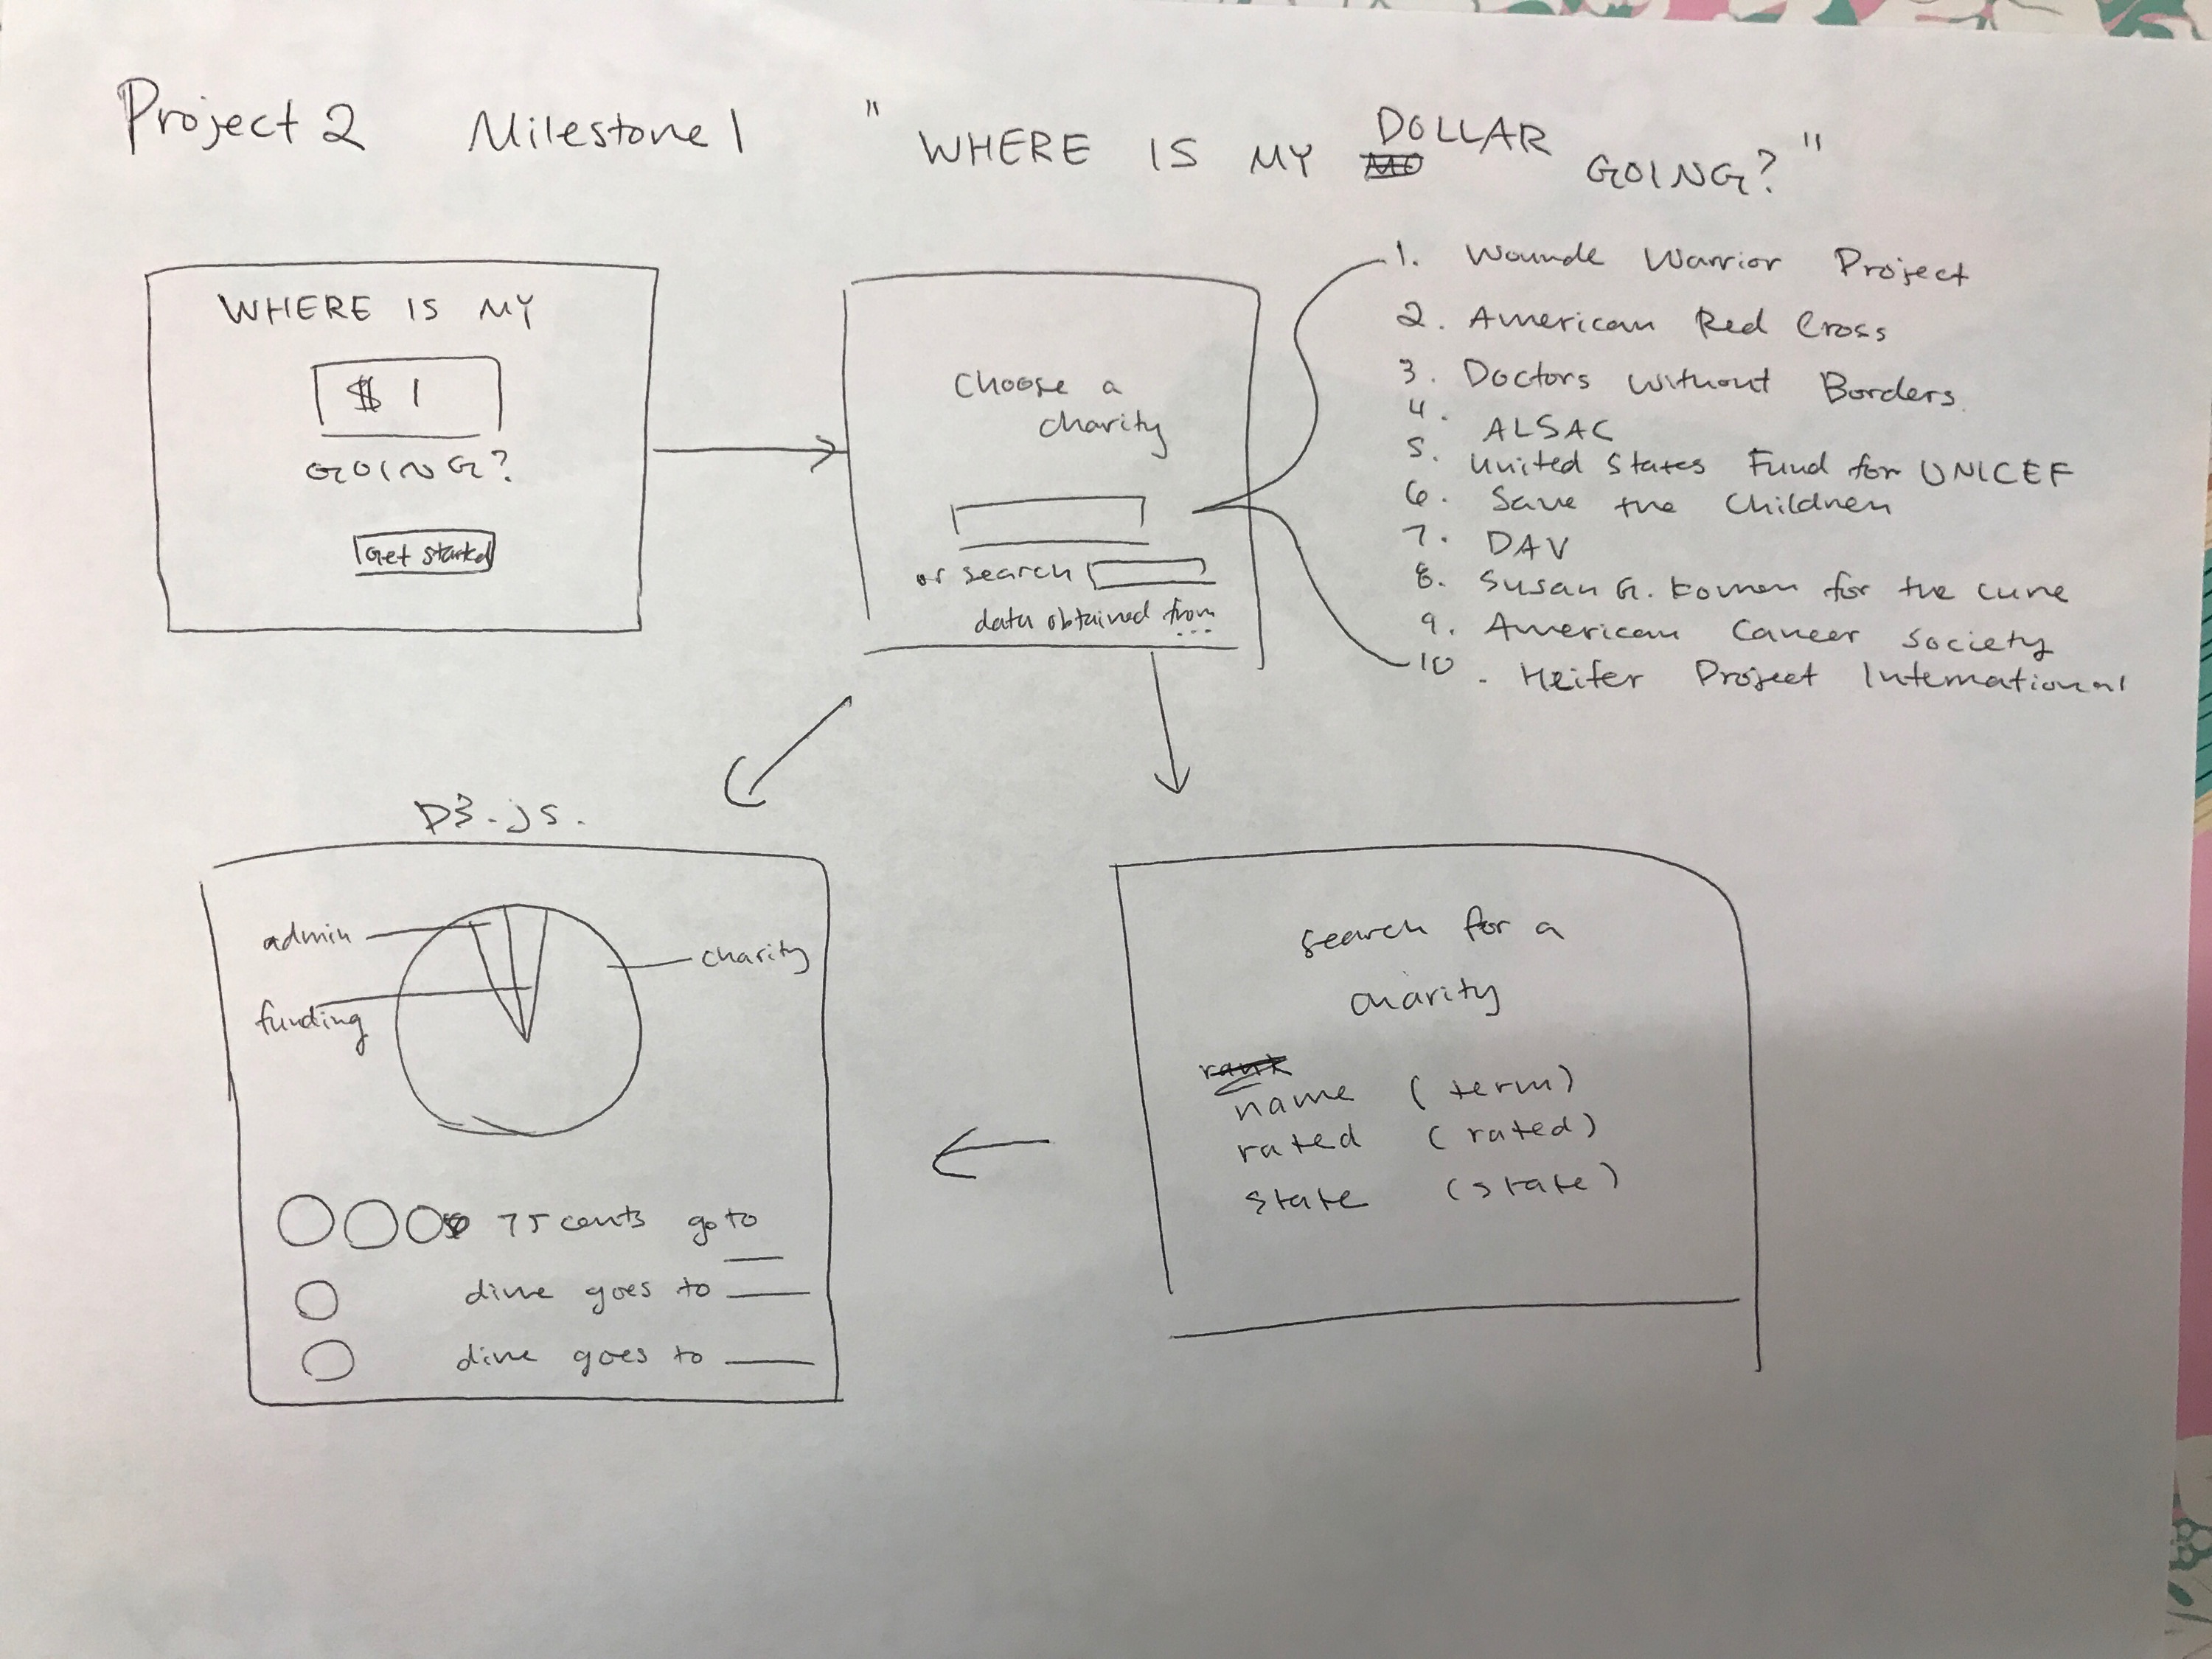 Project 2 Milestone 1 " WHERE IS MY DOLLAR GOING? "
WHERE IS MY
$ 1
GOING?
Get started
Choose a
charity
or search
data obtained from...
1. Wounde Warrior Project
2. American Red Cross
3. Doctors Without Borders.
4. ALSAC
5. United States Fund for UNICEF
6. Save the Children
7. DAV
8. Susan G. Komen for the cure
9. American Cancer Society
10. Heifer Project International
D3.js.
admin
funding
charity
75 cents go to
dime goes to
dime goes to
search for a
charity
name (term)
rated (rated)
state (state)